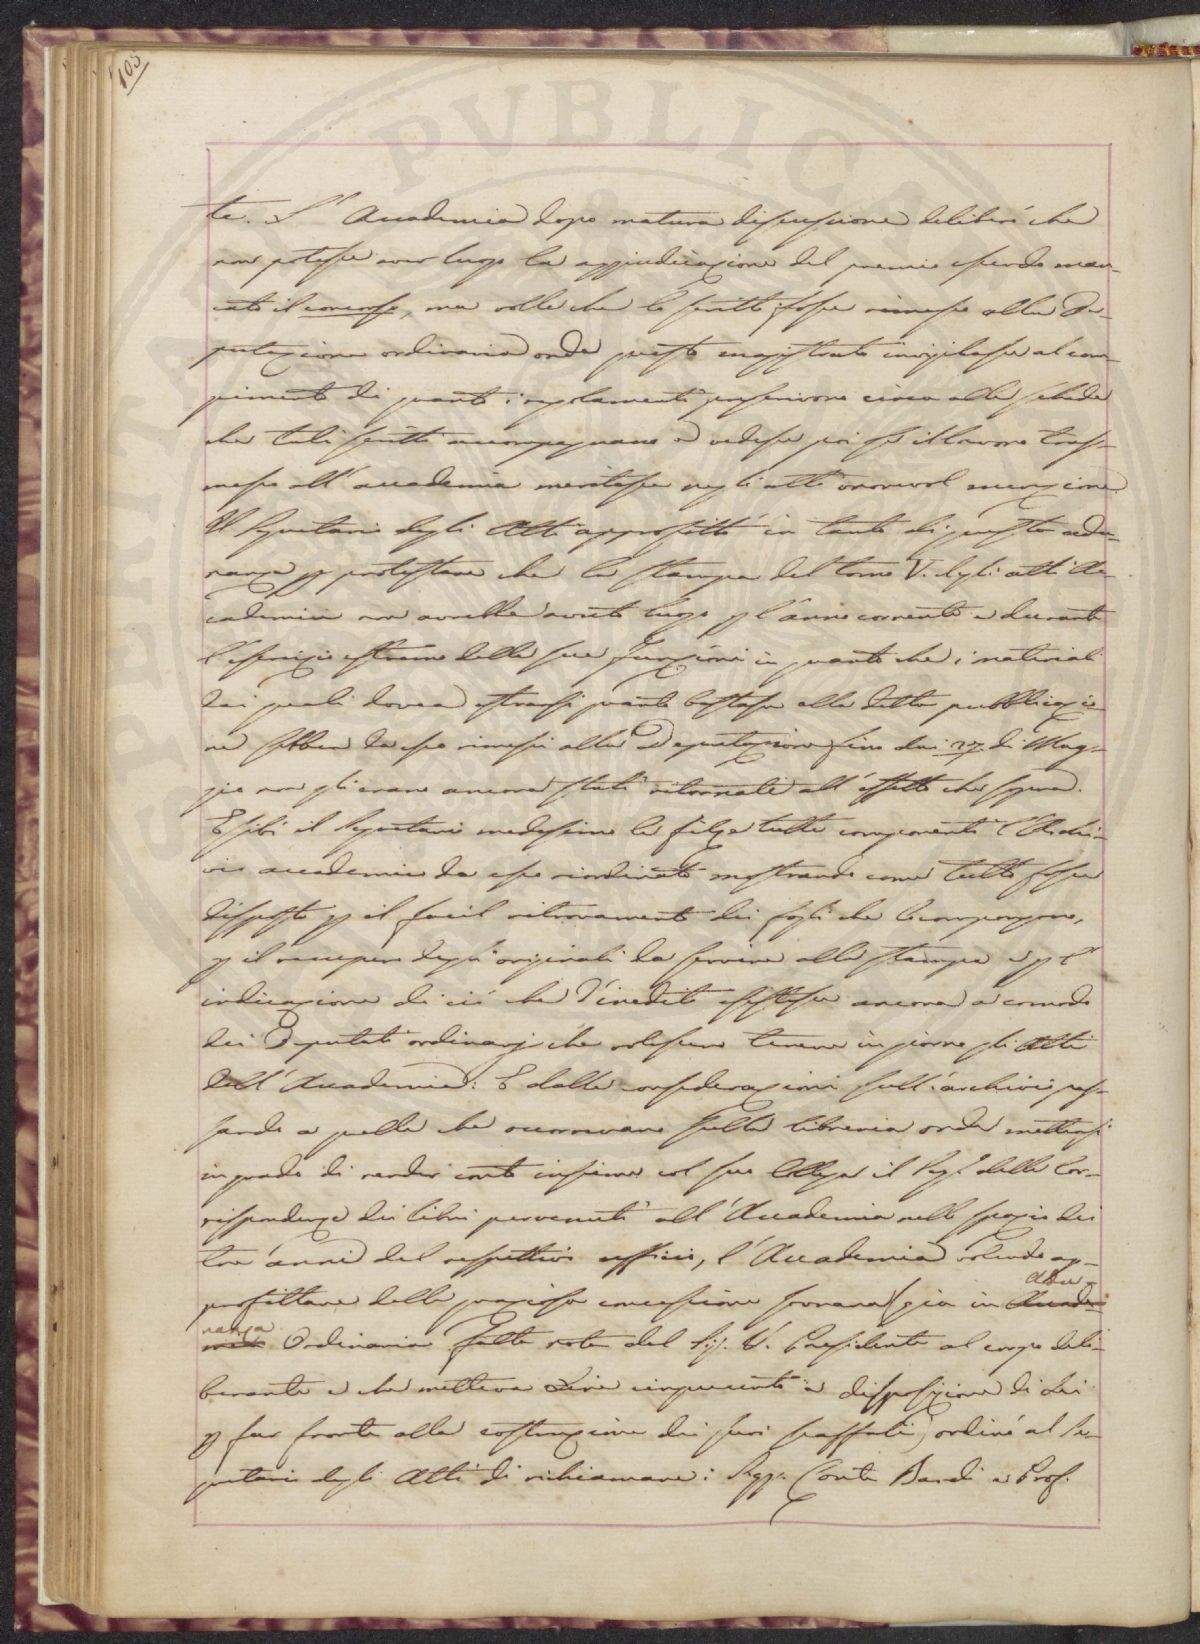 103
te. L'Accademia dopo matura discussione deliberò che
non potesse aver luogo la aggiudicazione del premio essendo man-
cato il concorso, ma volle che lo scritto fosse rimesso alla De-
putazione ordinaria onde questo magistrato invigilasse al com-
pimento di quanto i regolamenti prescrivono circa alle schede
che tali scritti accompagnano e vedesse poi se il lavoro tras-
messo all'accademia meritasse negli atti onorevol menzione.
Il Segretario degli Atti approfittò in tanto di questa adu-
nanza p protestare che la stampa del tomo V. degli atti Ac-
cademici non avrebbe avuto luogo p l'anno corrente e durante
l'esercizio estremo delle sue funzioni in quanto che i materiali
dai quali dovea estrarsi quanto bastasse alla detta pubblicazio-
ne sebben da esso rimessi alla Deputazione fino dai 27. di Mag-
gio non gli erano ancora stati ritornati all'effetto che sopra.
Esibì il Segretario medesimo le filze tutte componenti l'Archi-
vio accademico da esso riordinato mostrando come tutto fosse
disposto p il facil ritrovamento dei fogli che lo compongono,
p il recupero degli originali da servire alla stampa e p l'
indicazione di ciò che d'inedito esistesse ancora a comodo
dei Deputati ordinarj che volessero tenere in giorno gli Atti
dell'Accademia. E dalle considerazioni sull'archivio pas-
sando a quelle che occorrevano sulla libreria onde mettersi
in grado di render conto insieme col suo Collega il Seg.º delle Cor-
rispondenze dei libri pervenuti all'Accademia nello spazio dei
tre anni del respettivo uffizio, l'Accademia volendo ap-
profittare della graziosa concessione sovrana (già in Accade- adu-
mia nanza Ordinaria fatta nota dal Sig. V. Presidente al corpo deli-
berante e che metteva Lire cinquecento a disposizione di Lei
p far fronte alla costruzione dei suoi scaffali) ordinò al Se-
gretario degli Atti di richiamare i Sigg. Conte Bardi e Prof.
SPERITAT PVBLICA